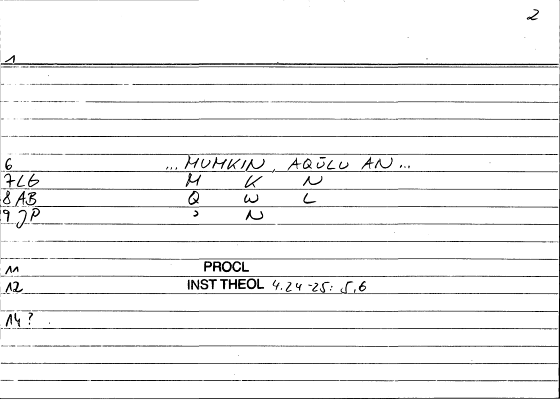 2
1
6 ... MUMKIN, AQŪLU AN...
7 LG M K N
8 AB Q W L
9 JP ʾ N
11 PROCL
12 INST THEOL 4.24-25: 5,6
14 ?